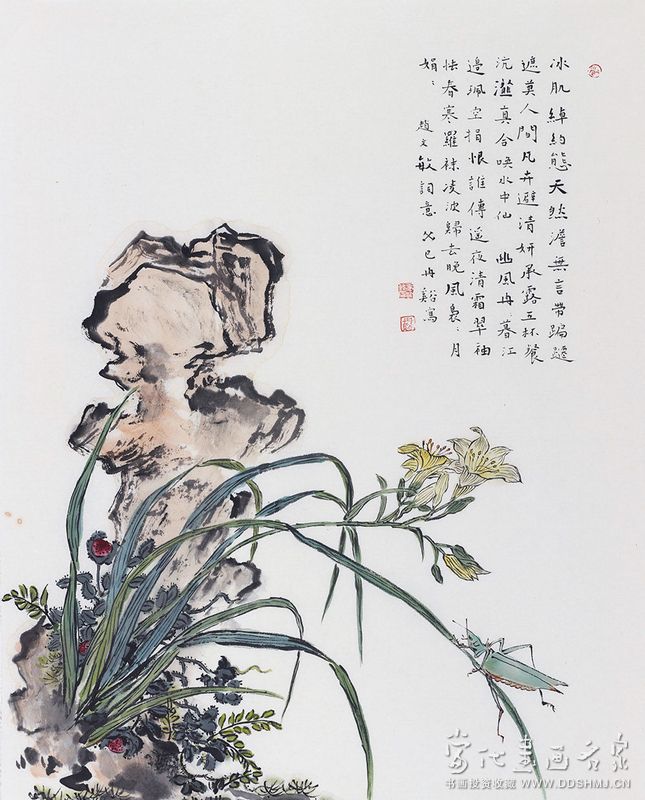 冰肌綽約態天然澹無言帶蹁躚
遮莫人間凡卉避清妍承露玉杯餐
沆瀣真合喚水中仙 幽風冉〻暮江
邊珮空捐恨誰傳遥夜清霜翠袖
怯春寒羅襪凌波歸去晚風裊〻月
娟〻 趙文敏詞意 癸巳冉谿寫
当代書画名家
书画投资收藏 WWW.DDSHMJ.CN